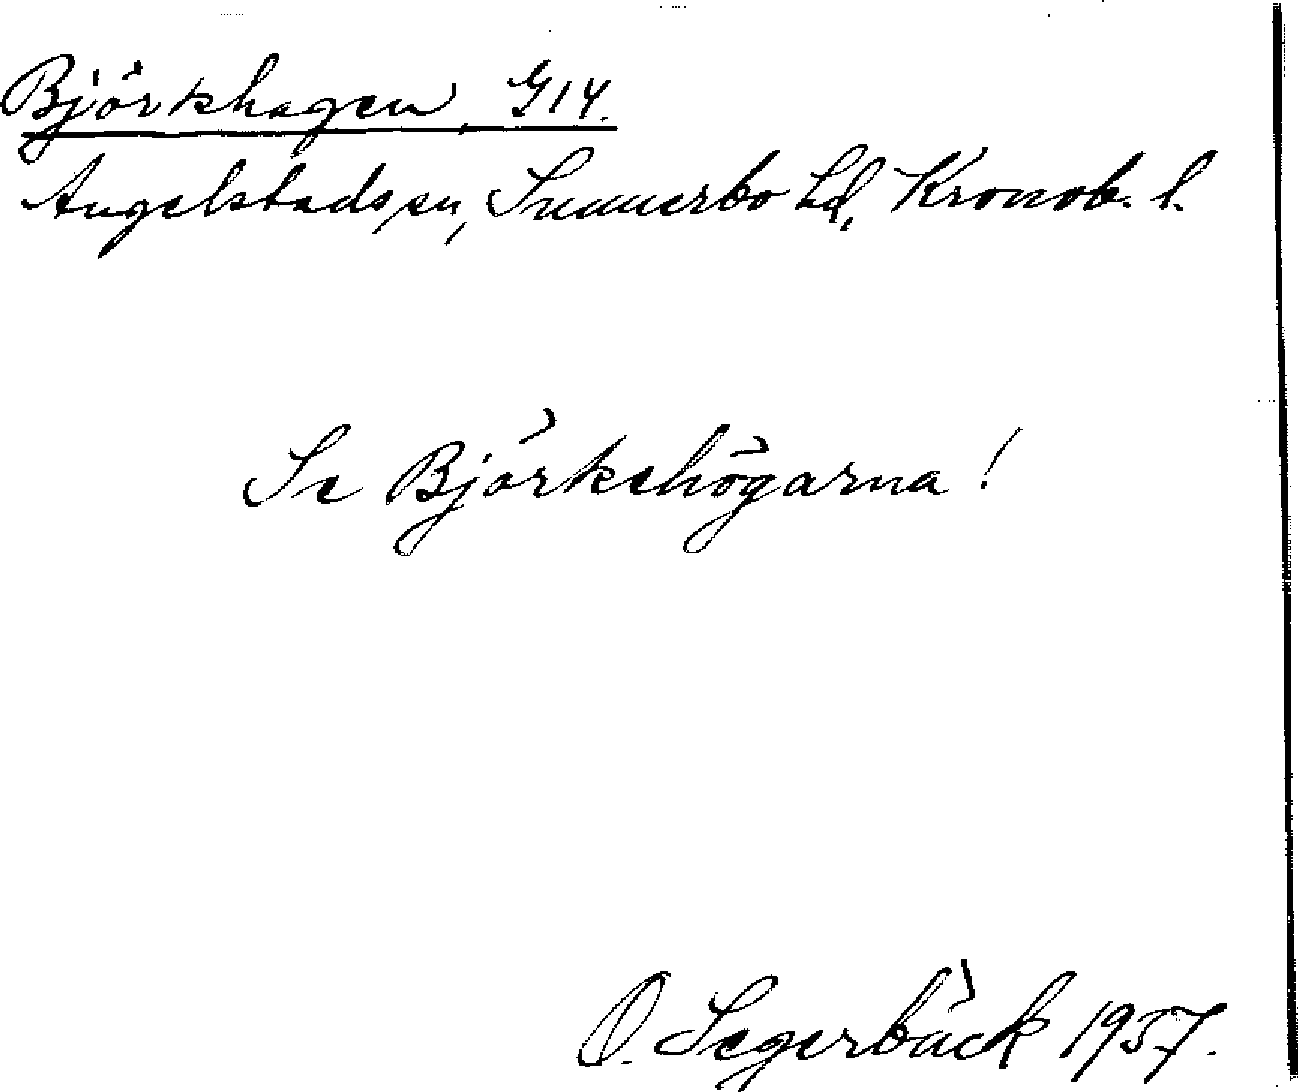 Björkhagen, G14.
Angelstads sn, Sunnerbo hd, Kronob. l.
Se Björkehögarna!
O. Segerbäck 1957.